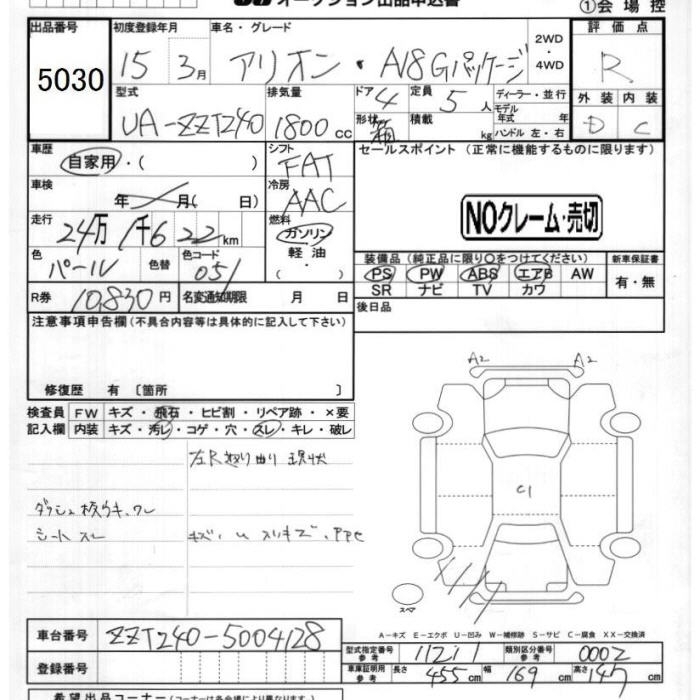 オークション出品申込書
①会場控
出品番号 初度登録年月 車名・グレード 2WD・4WD 評価点
5030 15 3月 アリオン・A18Gパッケージ R
型式 排気量 ドア 定員 ディーラー・並行 外装 内装
UA-ZZT240 1800cc 4 5人 モデル年式 年 D C
形状 箱 積載 kg ハンドル 左・右
車歴 シフト セールスポイント (正常に機能するものに限ります)
自家用・( ) FAT
車検 冷房
年 月( 日) AAC
NOクレーム・売切
走行 燃料
24万1千622km ガソリン
軽油
・( )
色 色替 色コード
パール 051
装備品 (純正品に限り○をつけてください) 新車保証書
PS PW ABS エアB AW 有・無
SR ナビ TV カワ
R券 10,830円 名変通知期限 月 日
後日品
注意事項申告欄 (不具合内容等は具体的に記入して下さい)
修復歴 有 〔箇所 〕
A2 A2
検査員 FW キズ・飛石・ヒビ割・リペア跡・×要
記入欄 内装 キズ・汚レ・コゲ・穴・スレ・キレ・破レ
現状
C1
シートスレ
スペア
A-キズ E-エクボ U-凹み W-補修跡 S-サビ C-腐食 XX-交換済
車台番号 ZZT240-5004128
型式指定番号 参考 11211 類別区分番号 参考 0002
登録番号
車庫証明用 参考 長さ 455cm 幅 169cm 高さ 147cm
希望出品コーナー (コーナーは各会場により異なります)